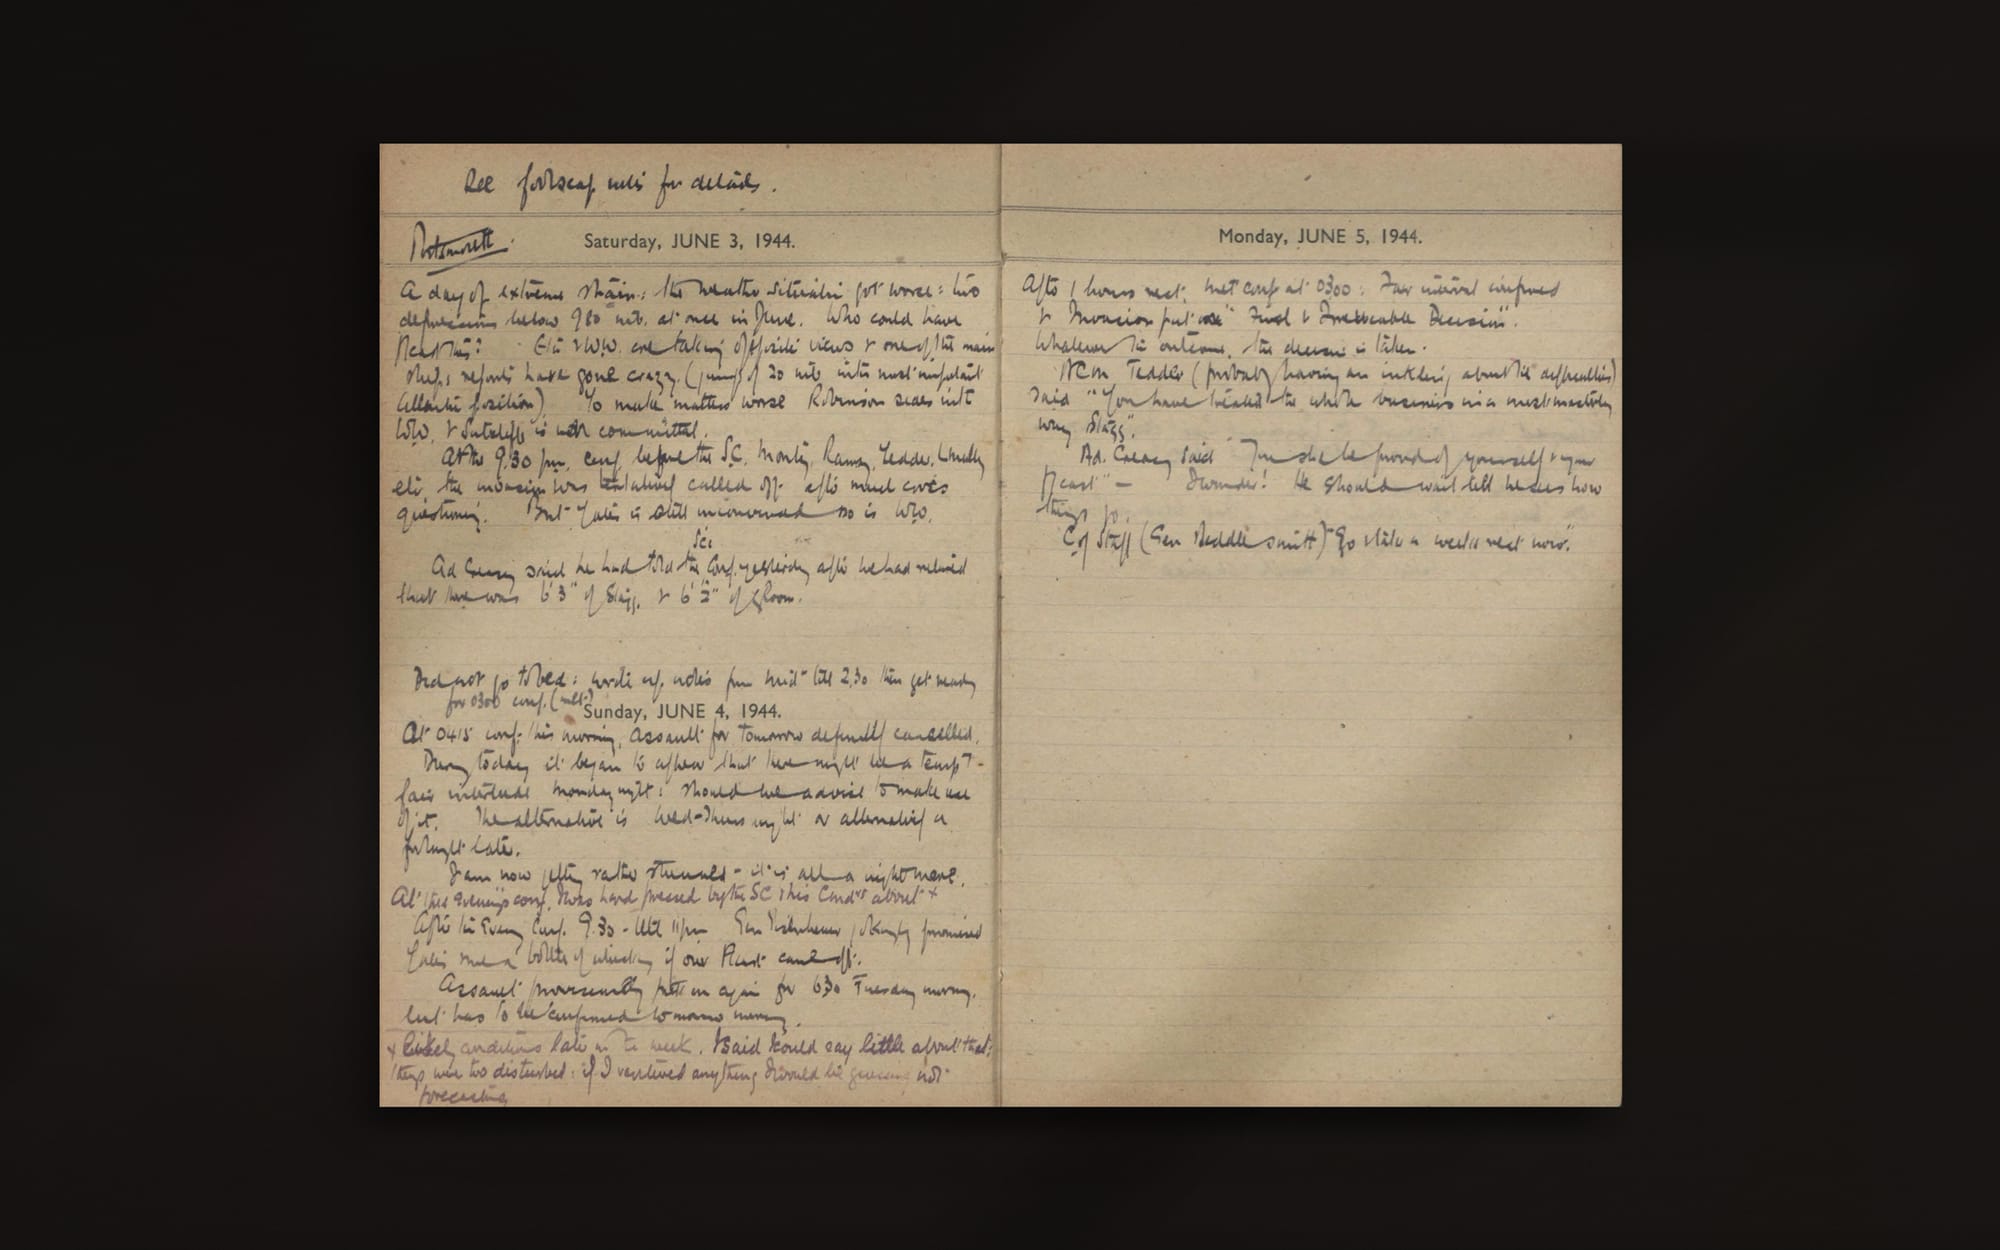 See foolscap notes for details.
Portsmouth.
Saturday, JUNE 3, 1944.
A day of extreme strain: the weather situation got worse: two
depressions below 980 mb. at once in June. Who could have
fcast this? & WW. are taking opposite views & one of the main
ships reports have gone crazy. (jump of 20 mb in its most important
Atlantic position). To make matters worse Robinson sides with
WW, & Sutcliffe is non committal.
At the 9.30 pm. conf before the S.C. Monty, Ramsay, Tedder, L'Mallory
etc, the invasion was tentatively called off after much cross
questioning. But Yates is still unconvinced so is WW.
Ad Creasy said he had told the SC's Conf. yesterday after we had retired
that there was 6'3" of Stagg & 6'2" of gloom.
Did not go to bed: wrote up notes from midt till 2.30 then got ready
for 0300 conf. (met)
Sunday, JUNE 4, 1944.
At 0415 conf. this morning, assault for tomorrow definitely cancelled.
During today it began to appear that there might be a temp
fair interlude Monday night: should we advise to make use
of it. The alternative is Wed-Thurs night or alternatively a
fortnight later.
I am now getting rather stunned - it is all a nightmare.
At this evening's conf. I was hard pressed by the SC & his Comdrs about +
After the Evening Conf. 9.30 - till 11pm Gen Eisenhower jokingly promised
Yates & me a bottle of whisky if our Fcast came off.
Assault provisionally put on again for 630 Tuesday morning.
but has to be confirmed tomorrow morning.
+ likely conditions later in the week. I said I could say little about that:
things were too disturbed: if I ventured anything I would be guessing not
forecasting
Monday, JUNE 5, 1944.
After 1 hours rest, met conf at 0300: Fair interval confirmed
& Invasion put on "Final & Irrevocable Decision".
Whatever the outcome, the decision is taken.
ACM Tedder (probably having an inkling about the difficulties)
said "You have treated the whole business in a most masterly
way Stagg".
Ad. Creasy said be proud of yourself & your
fcast" - I wonder! He should wait till he sees how
things go.
C of Staff (Gen Beddle Smith) "Go & take a week's rest now".